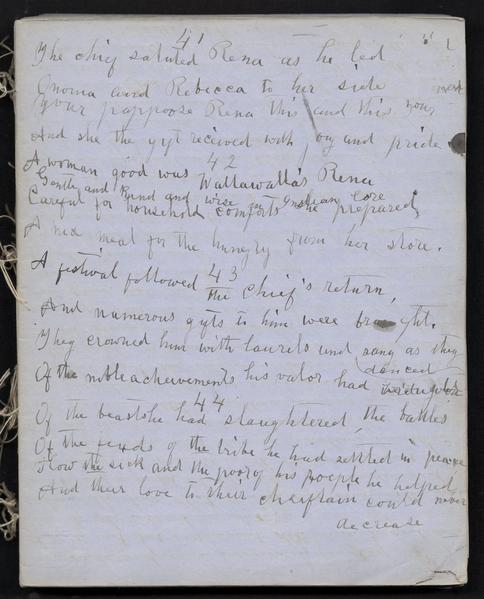 41
The chief saluted Rena as he led
Gnoma and Rebecca to her side
Your pappoose Rena this and this your
And she the gyt received with joy and pride.
42
A woman good was Wallawalla's Rena
Gently and kind and wise in Indian lore
Careful for household comforts she prepared,
A nice meal for the hungry from her store.
43
A festival followed the Chief's return,
And numerous gyts to him were brought.
They crowned him with laurels and sang as they danced
Of the noble achievements his valor had
44
Of the beasts he had slaughtered, the battles
Of the feuds of the tribe he had settled in peace
How the sick and the poor of his people he helped
And their love to their chieftain could never
decrease